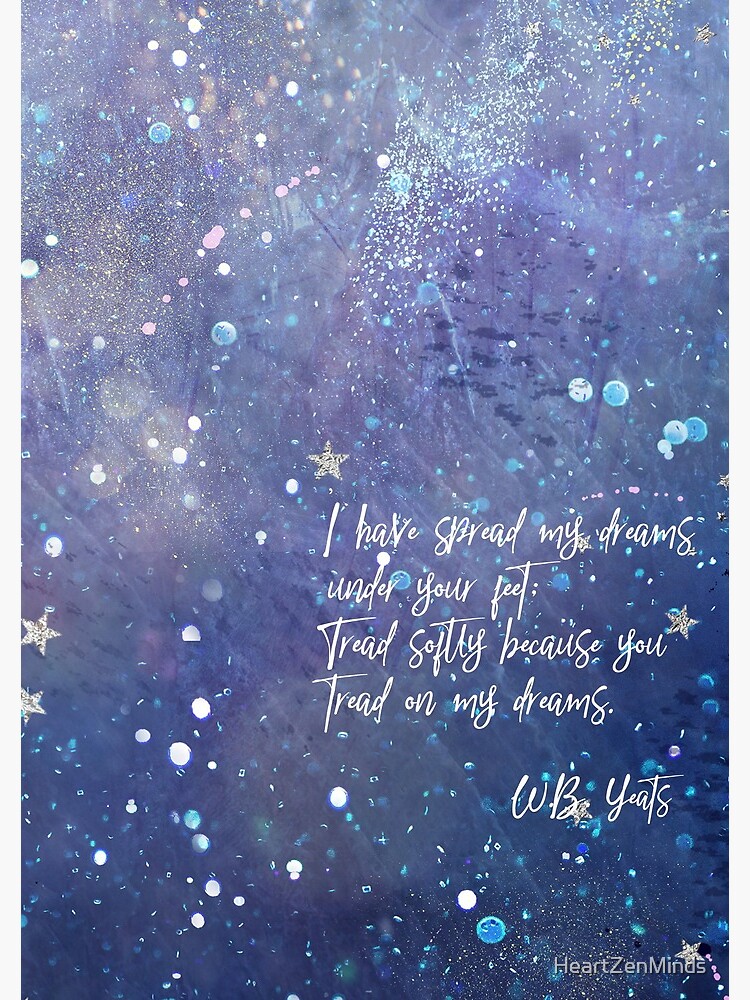 I have spread my dreams
under your feet;
Tread softly because you
Tread on my dreams.
W.B. Yeats
HeartZenMinds